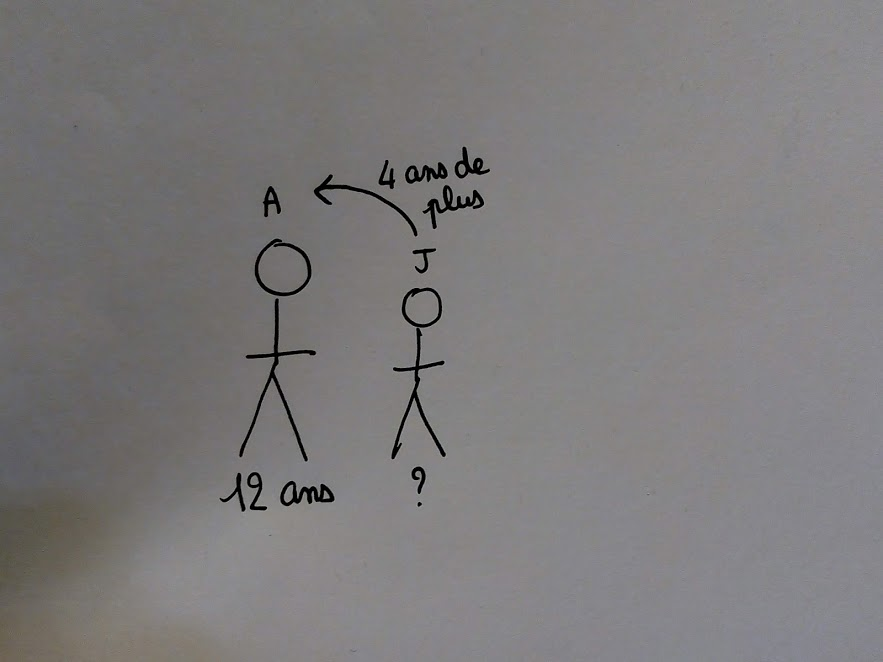 4 ans de
plus
A
J
12 ans
?